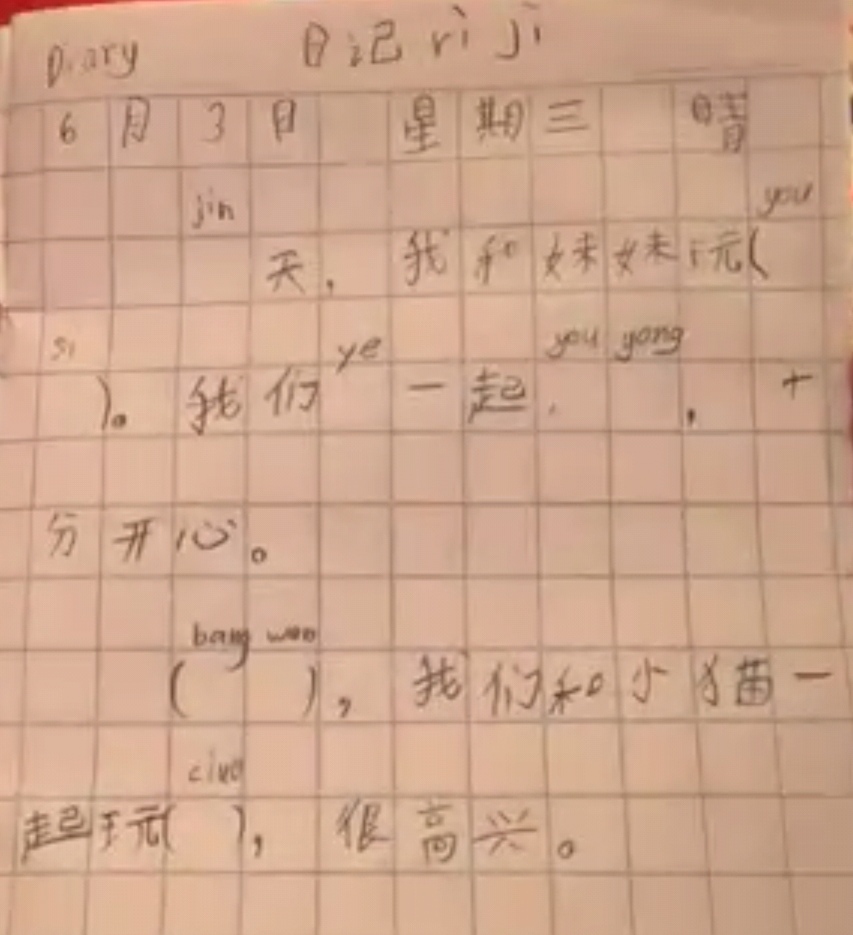 Diary 日记 rì jì
6月3日 星期三 晴
jin you
天，我和妹妹玩(
si ye you yong
)。我们一起，，十
分开心。
bang wan
( )，我们和小猫一
ciuo
起玩( )，很高兴。